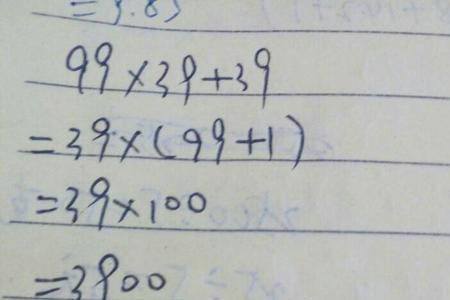 =3.85
99×39+39
=39×(99+1)
=39×100
=3900